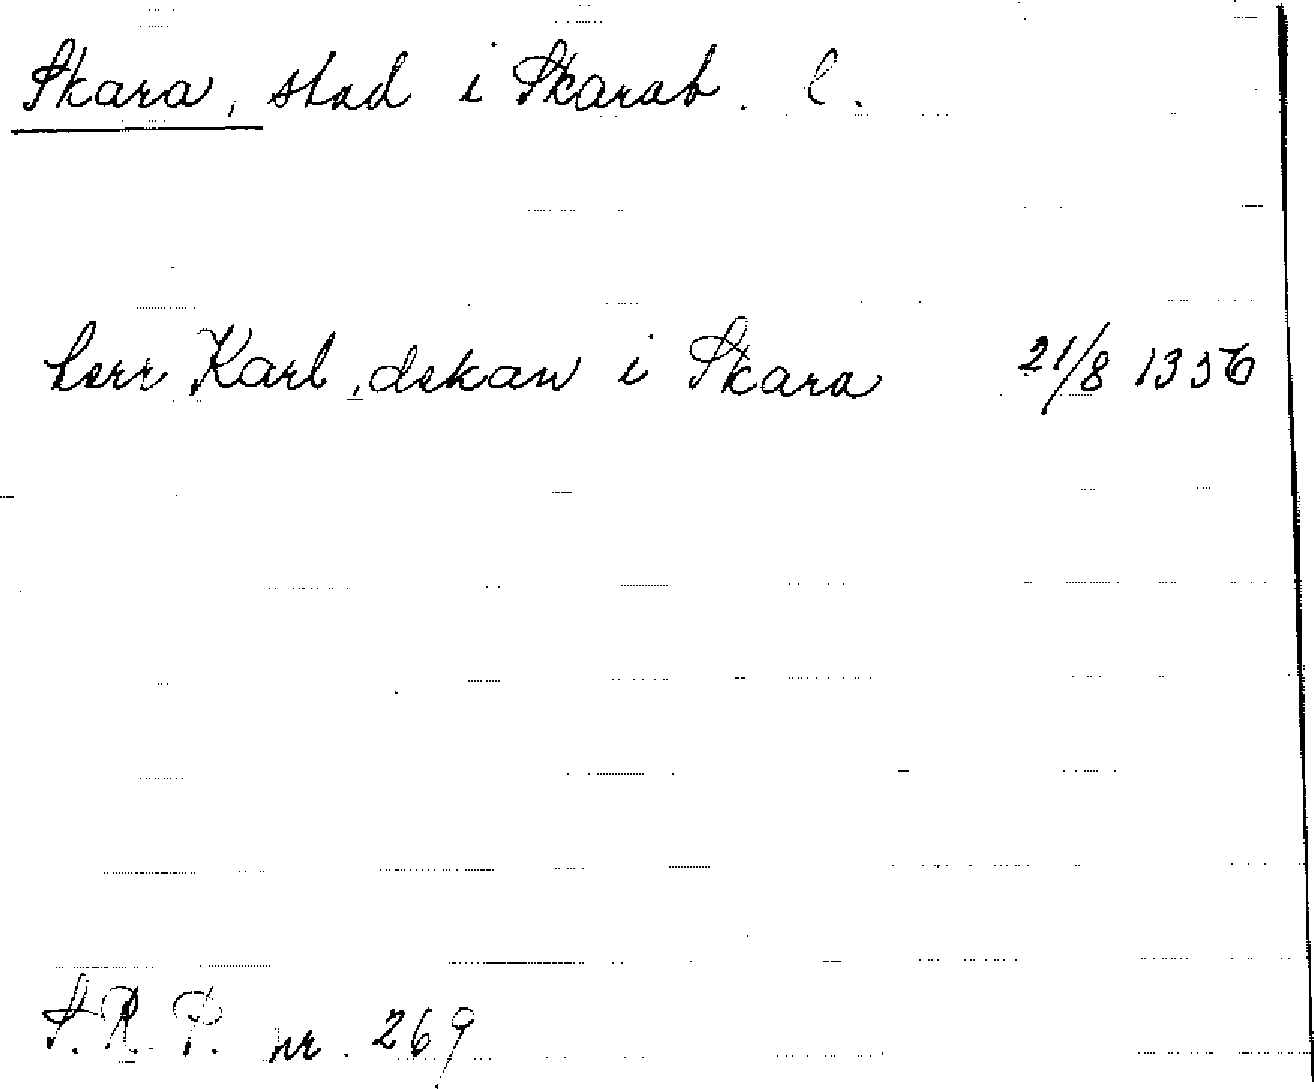 Skara, stad i Skarab. l.
herr Karl, dekan i Skara 21/8 1356
S.R.P. nr. 269